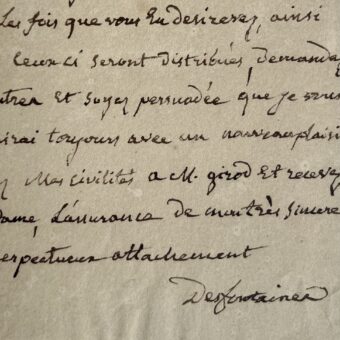 Les fois que vous En desirerez, ainsi
Ceux ci seront distribués, demandez
utres Et soyez persuadée que je vous
irai toujours avec un nouveau plaisi
Mes Civilités a M. girod Et recevez
dame, L'assurance de mon très sincere
espectueux attachement
Desfontaines